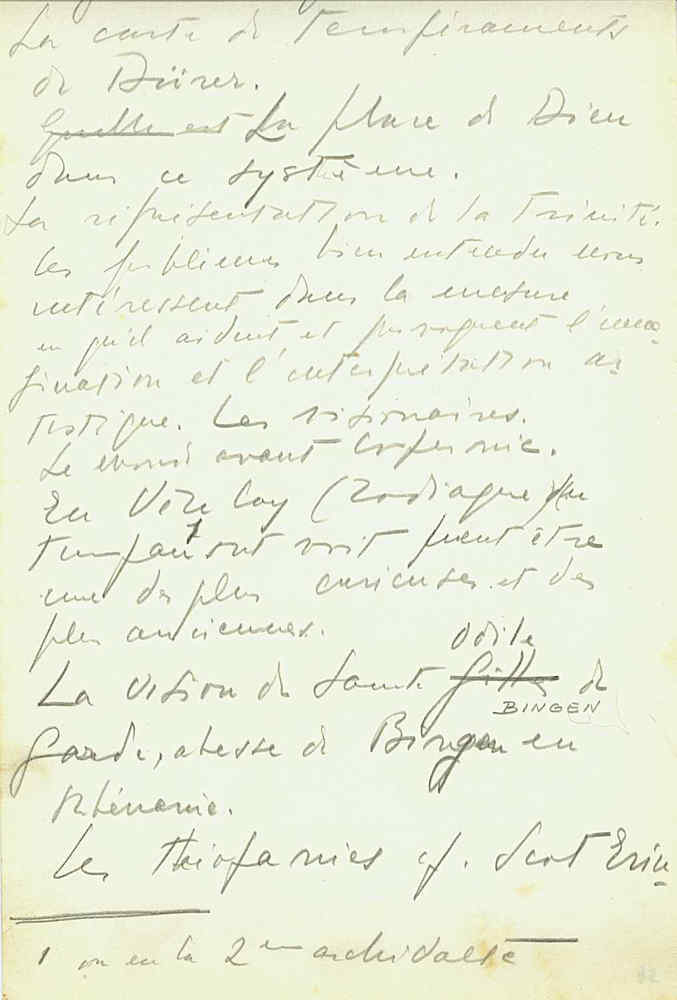 La carte de Tempéraments
de Dürer.
Quelle est La place de Dieu
dans ce système.
La représentation de la Trinité.
Les problèmes bien entendu nous
intéressent dans la mesure
en qu'il aident et provoquent l'ima-
gination et l'interprétation ar-
tistique. Les visionaires.
Le monde avant Copernic.
En Vézelay (Zodiaque) du
tympan¹ ont voit peut être
une des plus curieuses et des
plus anciennes.
La vision de Sainte Gilles Odile de
BINGEN
Garde, abesse de Bingen en
Rhénanie.
Les Théofanies cf. Scot Eriu-
1 ou en la 2em archivolte